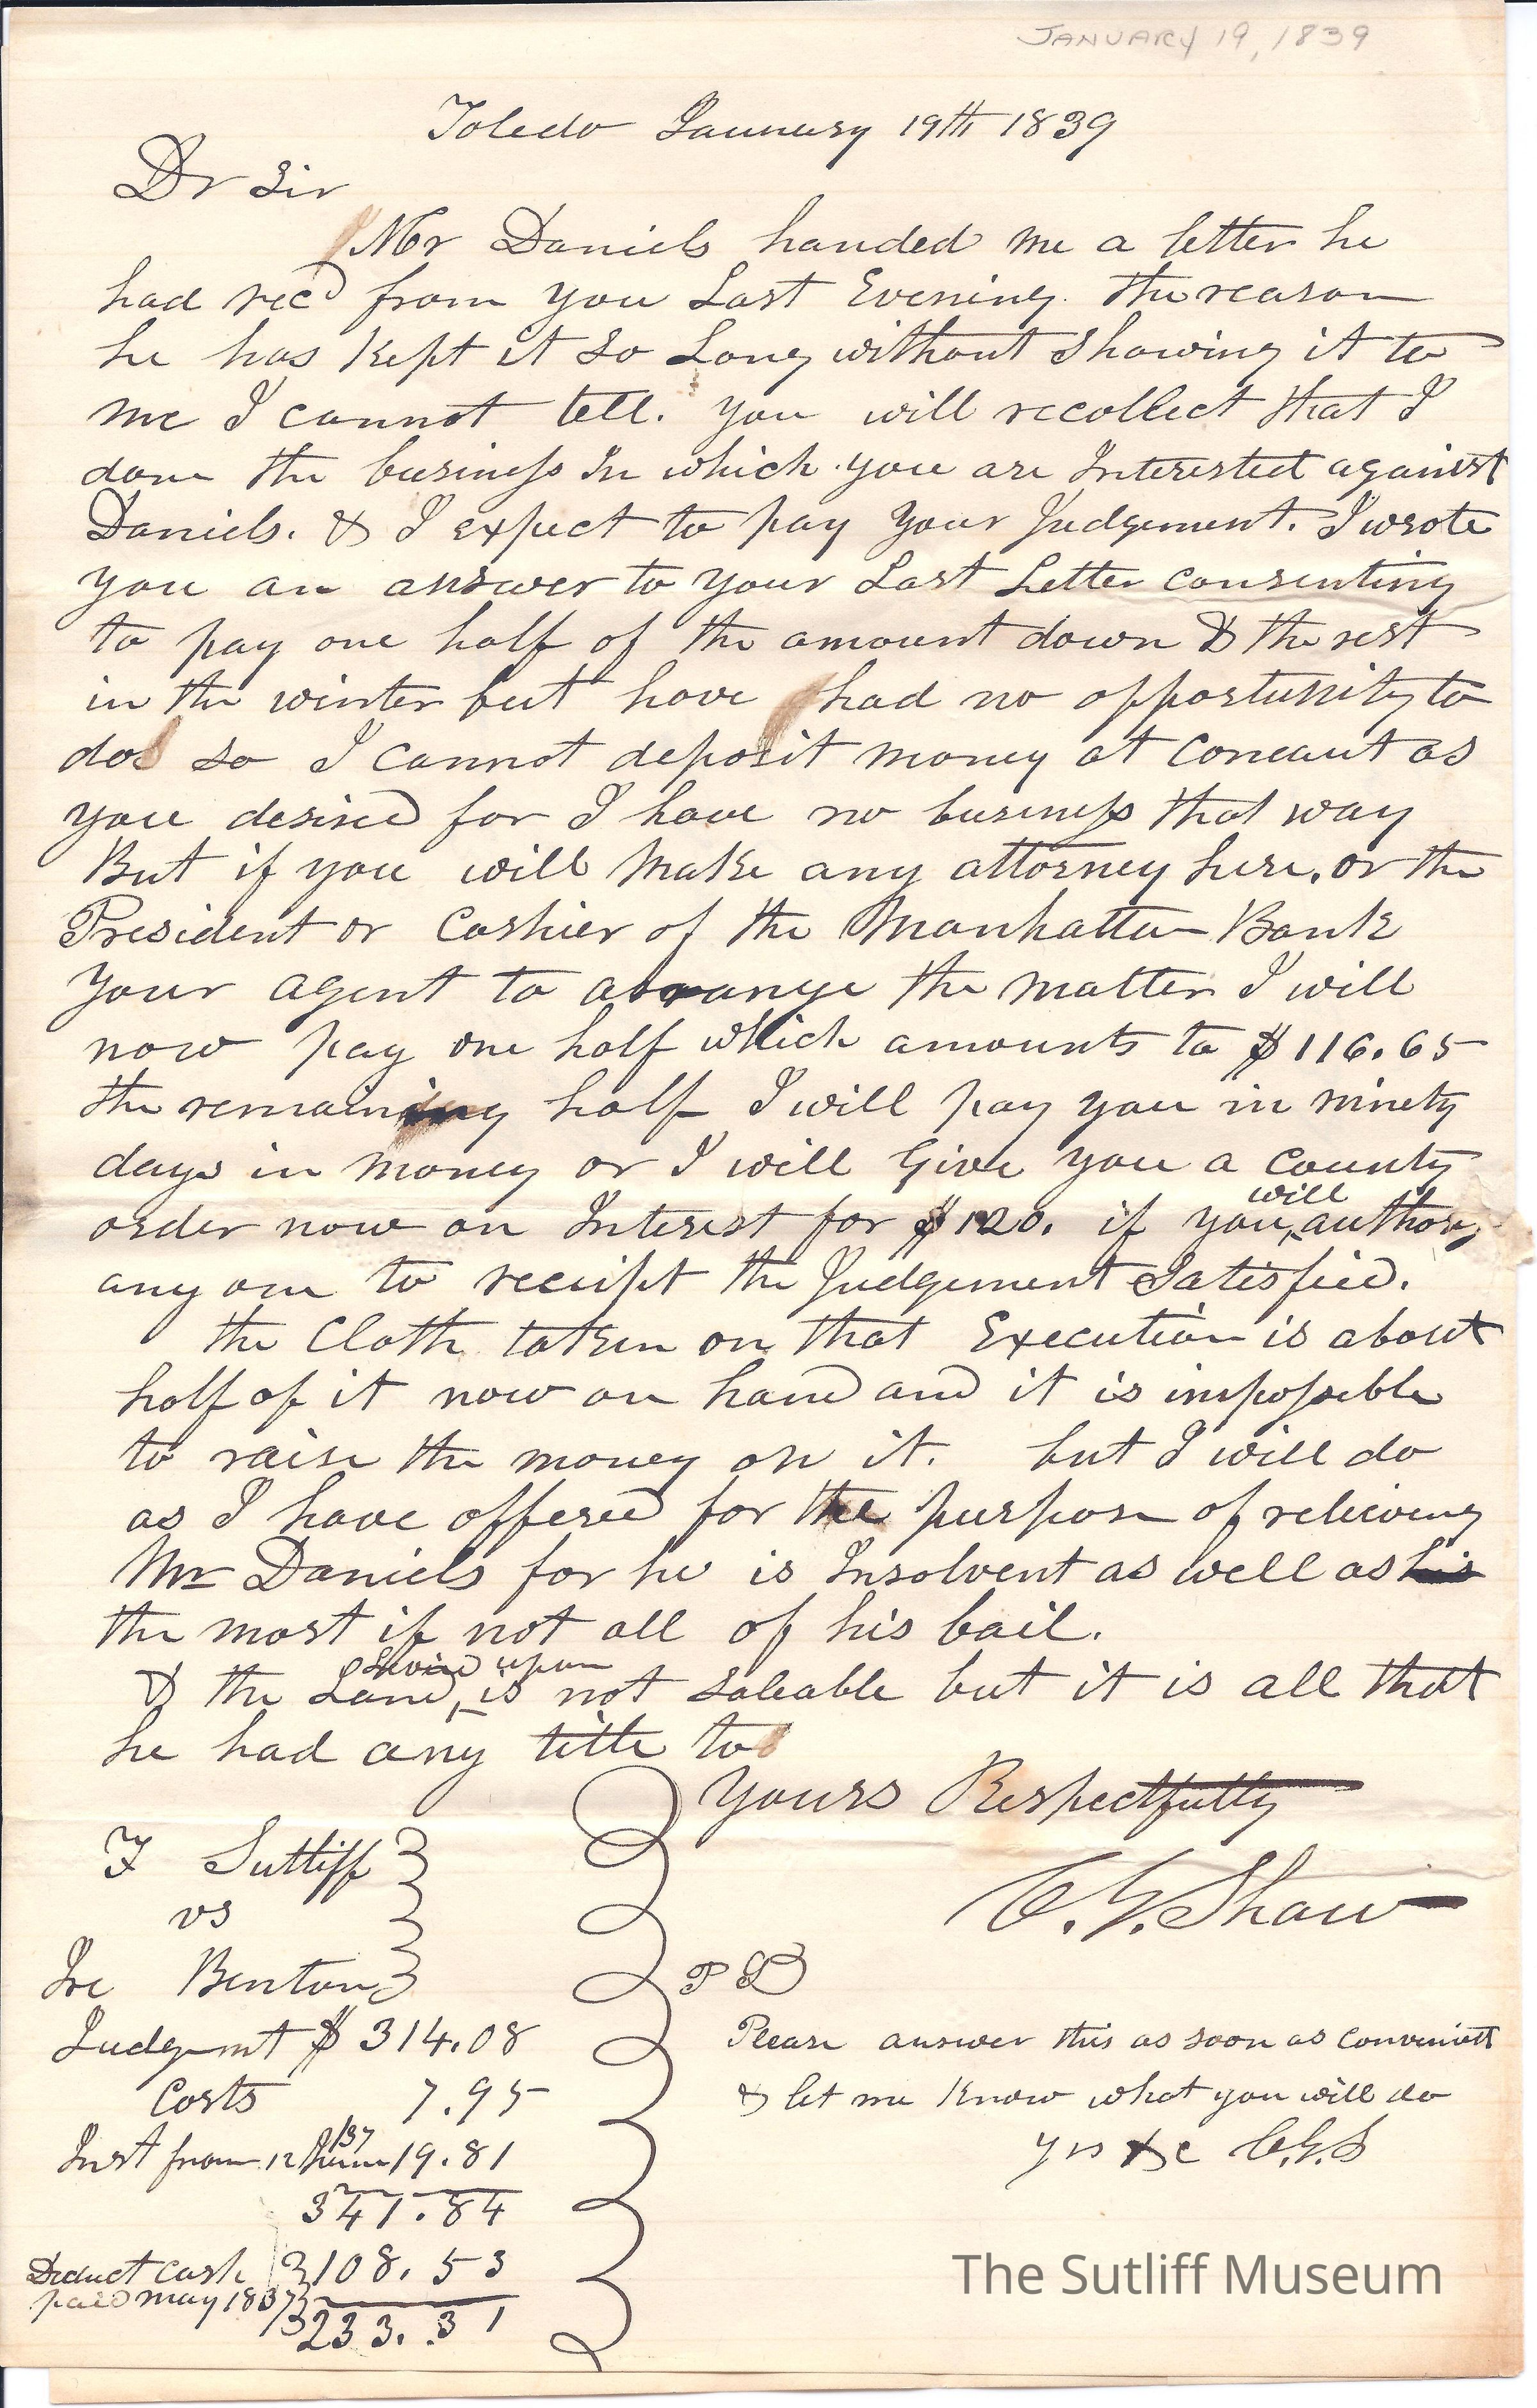 JANUARY 19, 1839
Toledo January 19th 1839
Dr Sir
Mr Daniels handed me a letter he
had recd from you Last Evening. the reason
he has Kept it so Long without showing it to
me I cannot tell. you will recollect that I
done the business In which you are Interested against
Daniels. & I expect to pay your Judgement. I wrote
you an answer to your Last Letter consenting
to pay one half of the amount down & the rest
in the winter but have had no opportunity to
do so I cannot deposit money at Coneaut as
you desired for I have no business that way
But if you will Make any attorney here, or the
President or Cashier of the Manhattan Bank
your agent to arrange the matter I will
now pay one half which amounts to $116.65
the remaining half I will pay you in ninety
days in money or I will Give you a County
order now on Interest for $120. if you will author
any one to receipt the Judgement Satisfied.
the Cloth taken on that Execution is about
half of it now on hand and it is impossible
to raise the money on it. but I will do
as I have offered for the purpose of relieving
Mr Daniels for he is Insolvent as well as his
the most if not all of his bail.
& the Land Levied upon is not saleable but it is all that
he had any title to
Yours Respectfully
C. G. Shaw
F Sutliff
vs
Benton
Judgmt $ 314.08
Costs 7.95
Inst from 12 /37 19.81
341.84
Deduct cash 108.53
paid may 1837
233.31
P S
Please answer this as soon as convenient
& let me Know what you will do
yrs &c C.G.S
The Sutliff Museum